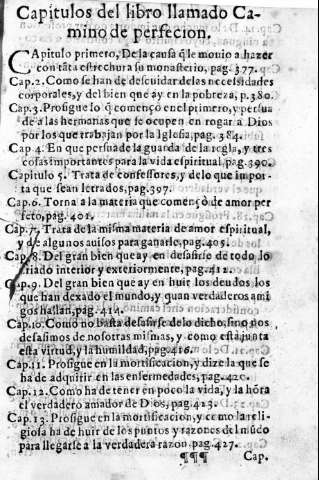 Capitulos del libro llamado Ca-
mino de perfecion.
CApitulo primero, De la causa q̃ le mouio a hazer
con tãta estrechura su monasterio, pag. 377.
Cap. 2. Como se han de descuidar de las necessidades
corporales, y del bien que ay en la pobreza, p. 380.
Cap. 3. Prosigue lo q̃ començo en el primero, y persua
de a las hermanas que se ocupen en rogar a Dios
por los que trabajan por la Iglesia, pag. 384.
Cap 4. En que persuade la guarda de la regla, y tres
cosas importantes para la vida espiritual, pag. 390.
Capitulo 5. Trata de confessores, y de lo que impor-
ta que sean letrados, pag. 397.
Cap. 6. Torna a la materia que començò de amor per
feto, pag. 401.
Cap. 7. Trata de la misma materia de amor espiritual,
y de algunos auisos para ganarle, pag. 405.
Cap. 8. Del gran bien que ay en desasirse de todo lo
criado interior y exteriormente, pag. 411.
Cap. 9. Del gran bien que ay en huir los deudos los
que han dexado el mundo, y quan verdaderos ami
gos hallan, pag. 414.
Cap. 10. Como no basta desasirse de lo dicho, si no nos
desasimos de nosotras mismas, y como està junta
esta virtud, y la humildad, pag. 416.
Cap. 11. Prosigue en la mortificacion, y dize la que se
ha de adquirir en las enfermedades, pag. 420.
Cap. 12. Como ha de tener en poco la vida, y la hõra
el verdadero amador de Dios, pag. 423.
Cap. 13. Prosigue en la mortificacion, y como la reli-
giosa ha de huir de los puntos y razones del mũdo
para llegarse a la verdadera razon. pag. 427.
¶¶¶ Cap.